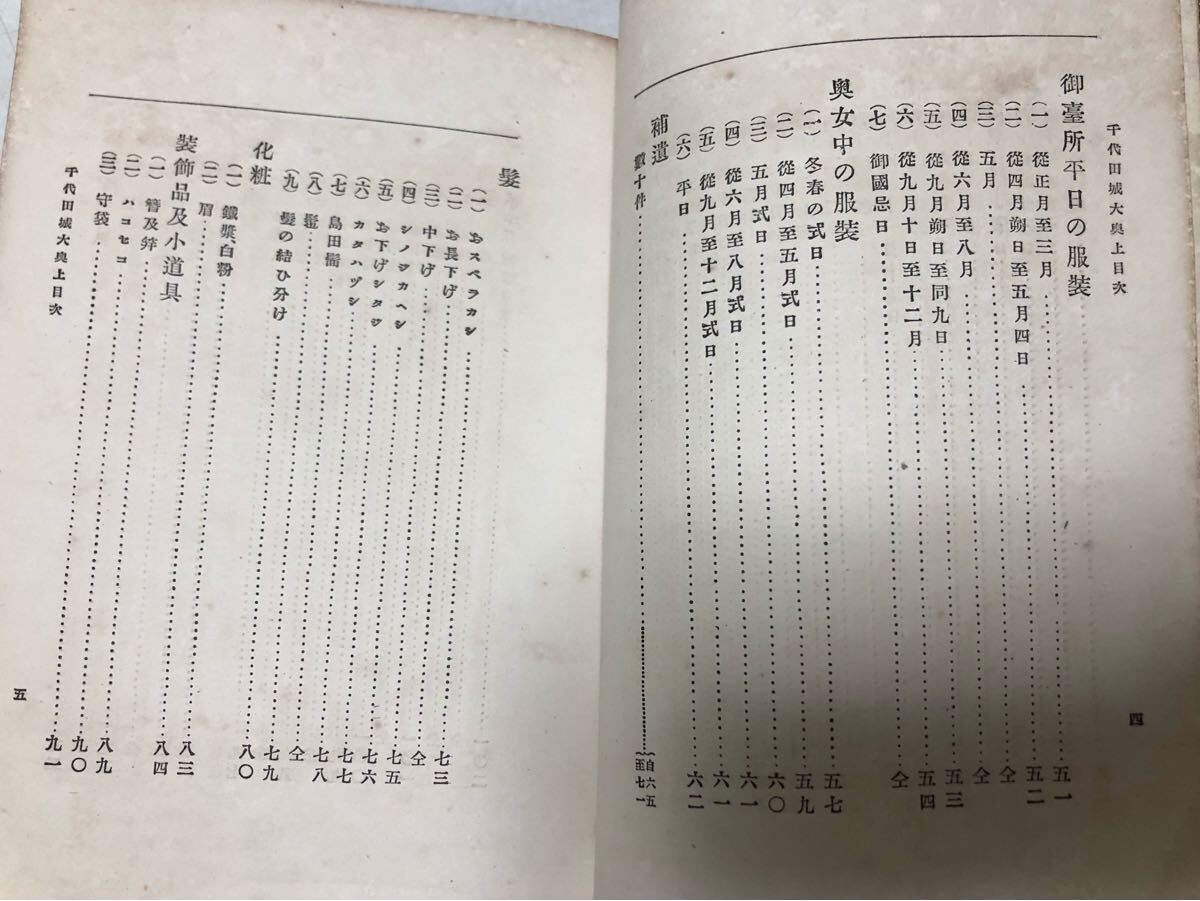 千代田城大奥上目次 四
御臺所平日の服装
(一) 從正月至三月……五一
(二) 從四月朔日至五月四日……五二
(三) 五月……仝
(四) 從六月至八月……仝
(五) 從九月朔日至同九日……五三
(六) 從九月十日至十二月……五四
(七) 御國忌日……仝
奥女中の服装
(一) 冬春の式日……五七
(二) 從四月至五月式日……五九
(三) 五月式日……六〇
(四) 從六月至八月式日……六一
(五) 從九月至十二月式日……六一
(六) 平日……六二
補遺
數十件……自六五至七一
髮
(一) おスベラカシ……七三
(二) お長下げ……仝
(三) 中下げ……七五
(四) シノヲカヘシ……七六
(五) お下げシタヅ……七七
(六) カタハヅシ……七八
(七) 島田髷……仝
(八) ……七九
(九) 髮の結ひ分け……八〇
化粧
(一) 鐵漿、白粉……八三
(二) 眉……八四
装飾品及小道具
(一) 簪及笄……八九
(二) ハコセコ……九〇
(三) 守袋……九一
千代田城大奥上目次 五